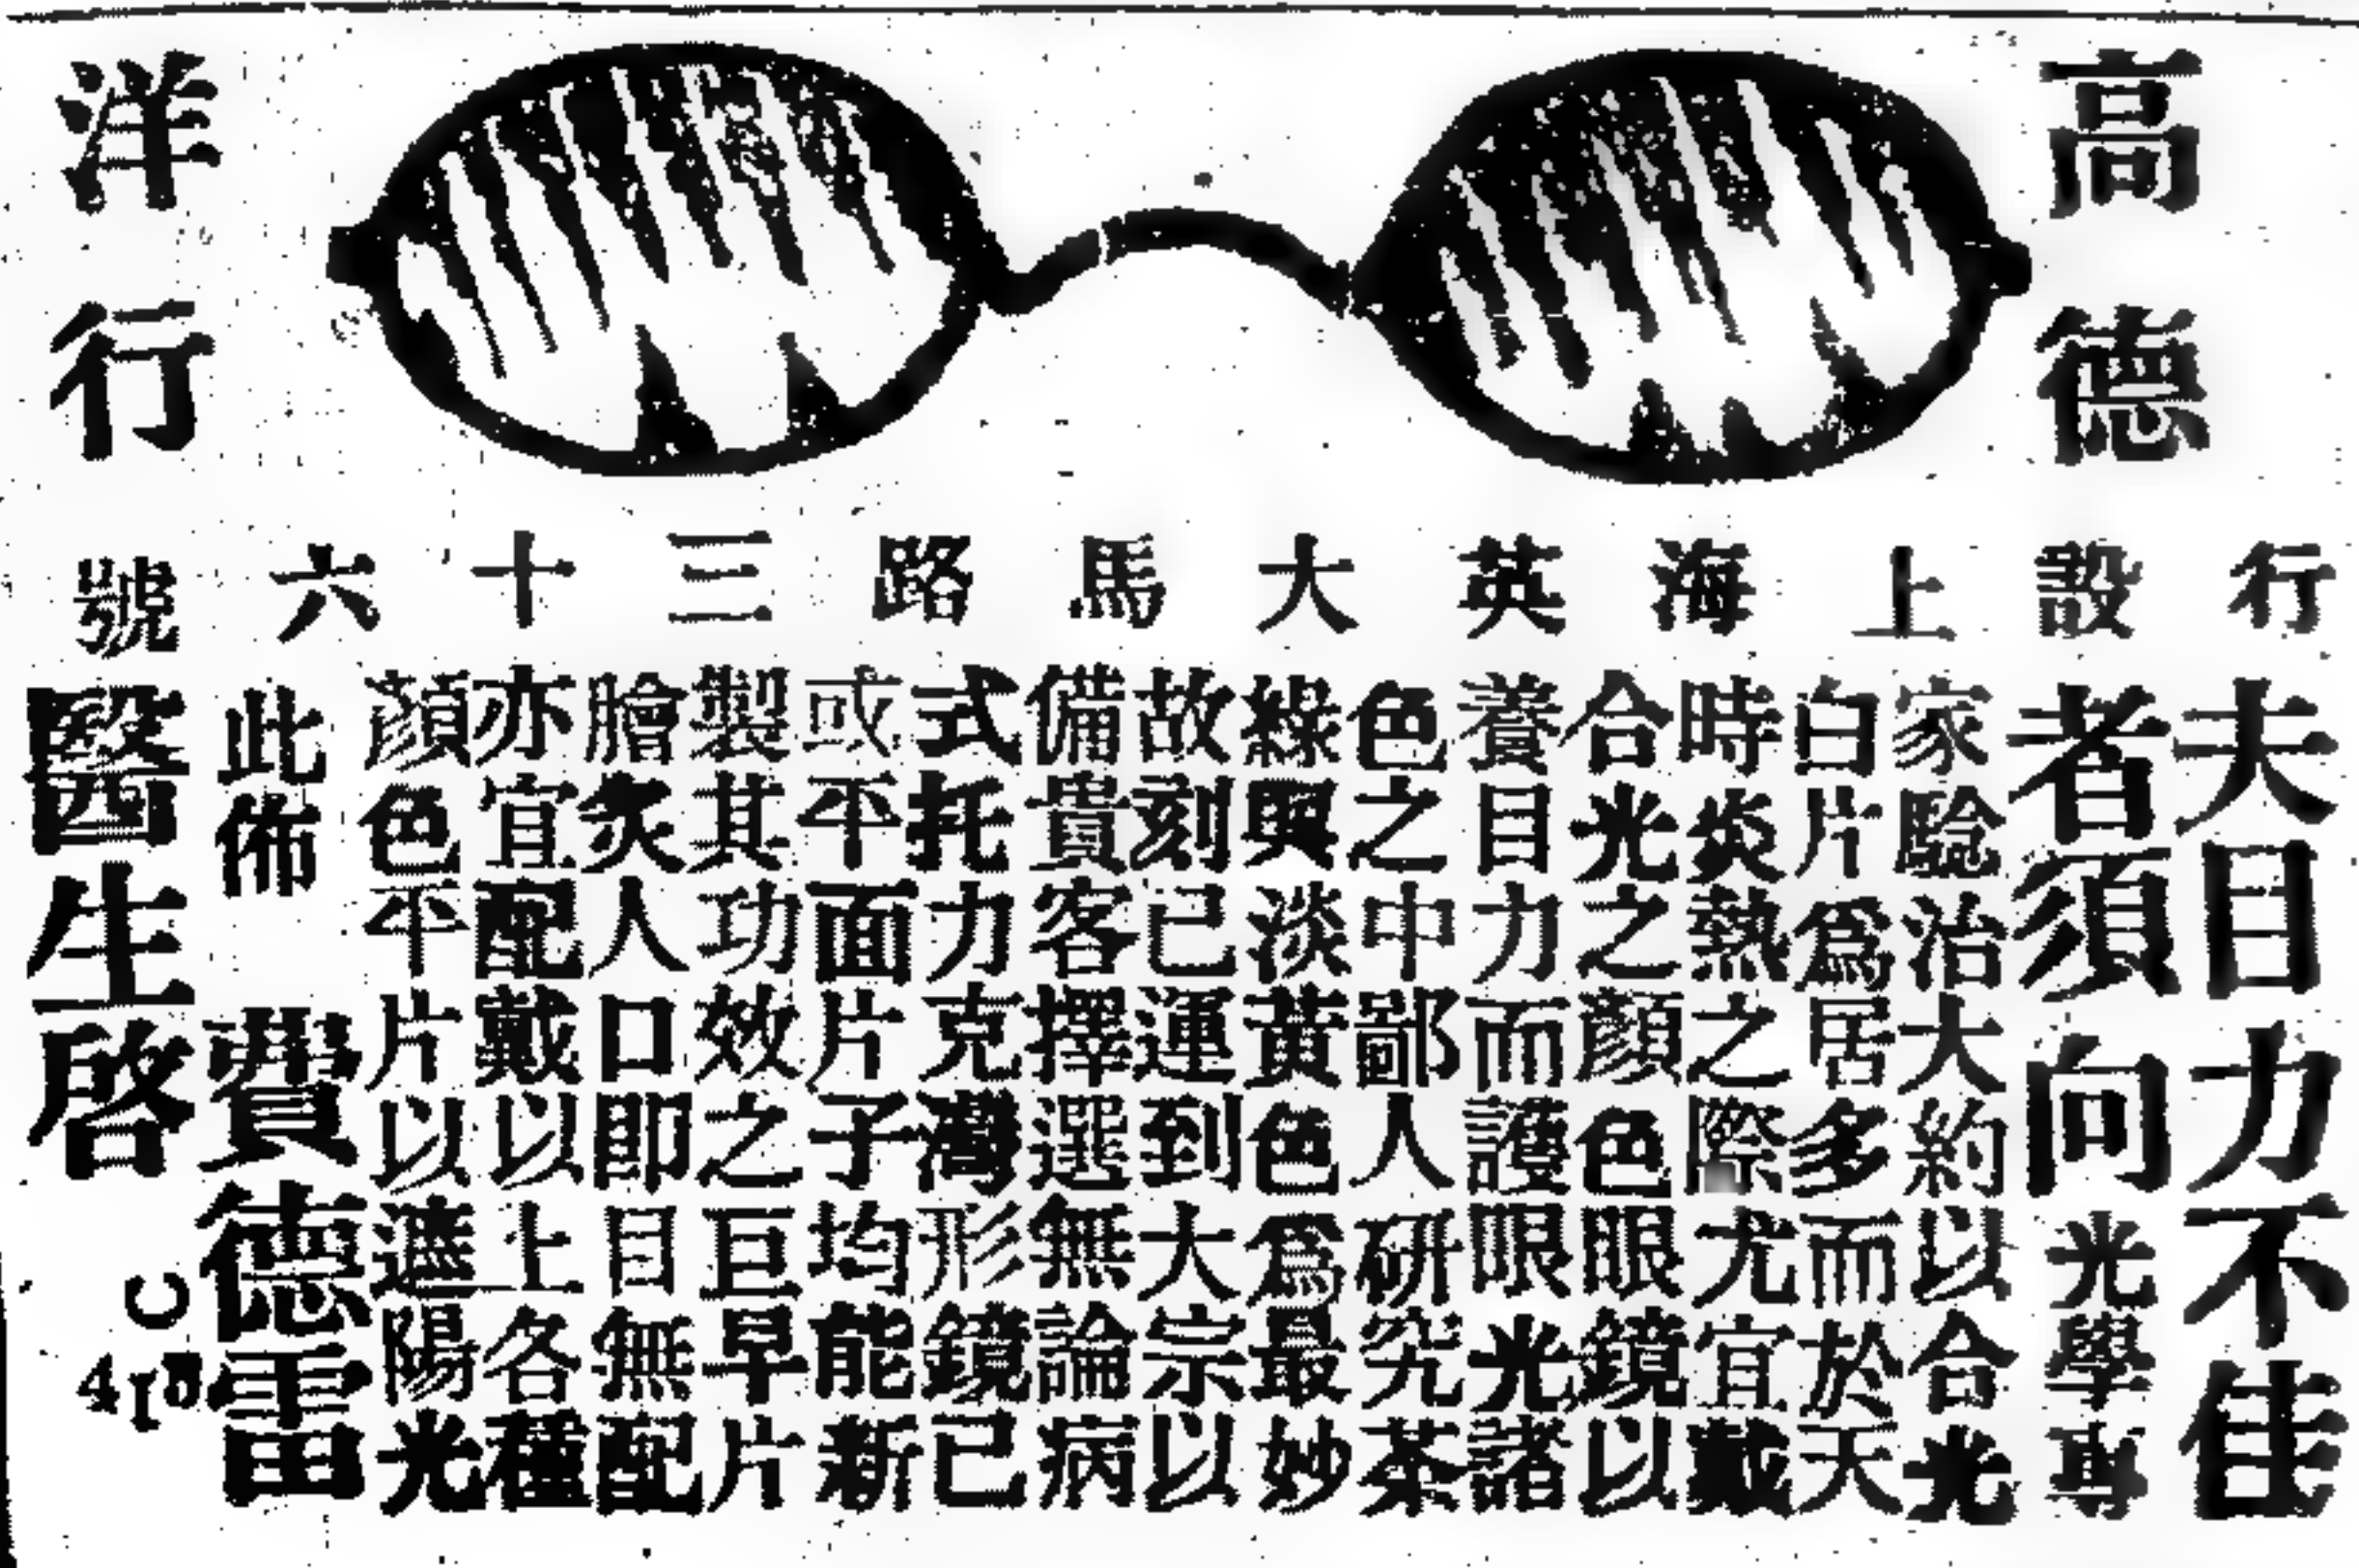 高德
洋行
行設上海英大馬路三十六號
夫目力不佳
者須向光學專
家驗治大約以合光
白片爲居多而於天
時炎熱之際尤宜戴
合光之顏色眼鏡以
養目力而護眼光諸
色之中鄙人研究茶
綠與淡黃色爲最妙
故刻已運到大宗以
備貴客擇選無論病
式托力克灣形鏡已
或平面片子均能新
製其功效之巨早片
膾炙人口即目無配
亦宜配戴以上各種
顏色平片以遮陽光
此佈 費德雷
醫生啓
C
418